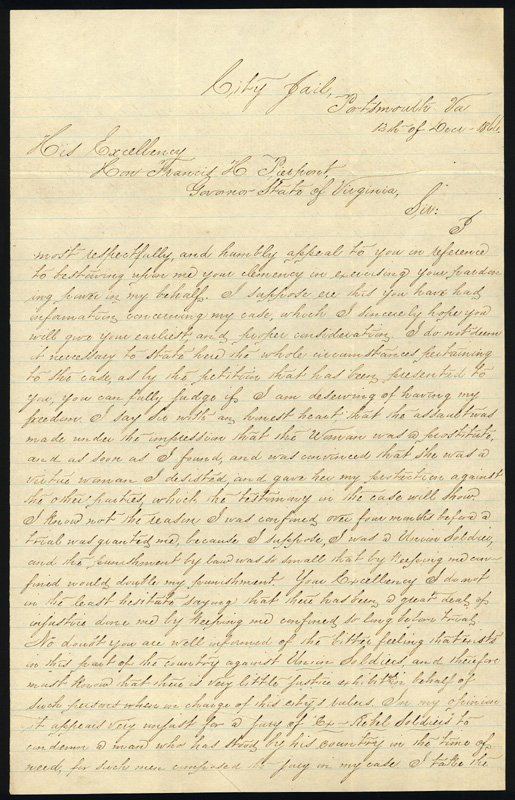 City Jail,
Portsmouth Va
13th of Decr 1866
His Excellency
Hon Francis H Pierpont,
Govonor State of Virginia,
Sir:
I
most respectfully, and humbly appeal to you in reference
to bestowing upon me your clemency in exercising your pardon
ing power in my behalf. I suppose ere this you have had
information concerning my case, which I sincerely hope you
will give your earliest, and proper consideration. I do not deem
it necessary to state here the whole circumstances pertaining
to the case, as by the petition that has been presented to
you, you can fully judge if I am deserving of having my
freedom. I say Sir with an honest heart that the assault was
made under the impression that the Woman was a prostitute,
and as soon as I found, and was convinced that she was a
virtue woman I desisted, and gave her my protection against
the other parties, which the testimony in the case will show.
I know not the reason I was confined over four months before a
trial was granted me, because I suppose I was a Union Soldier,
and the punishment by law was so small that by keeping me con-
fined would double my punishment. Your Excellency I do not
in the least hesitate saying that there has been a great deal of
injustice done me by keeping me confined so long before trial.
No doubt you are well informed of the bitter feeling that exists
in this part of the country against Union Soldiers, and therefore
must know that there is very little justice exhibit in behalf of
such persons when in charge of his city's rulers. In my opinion
it appears very unjust for a jury of Ex-Rebel Soldiers to
condemn a man who has stood by his country in the time of
need, for such men composed the jury in my case I take the